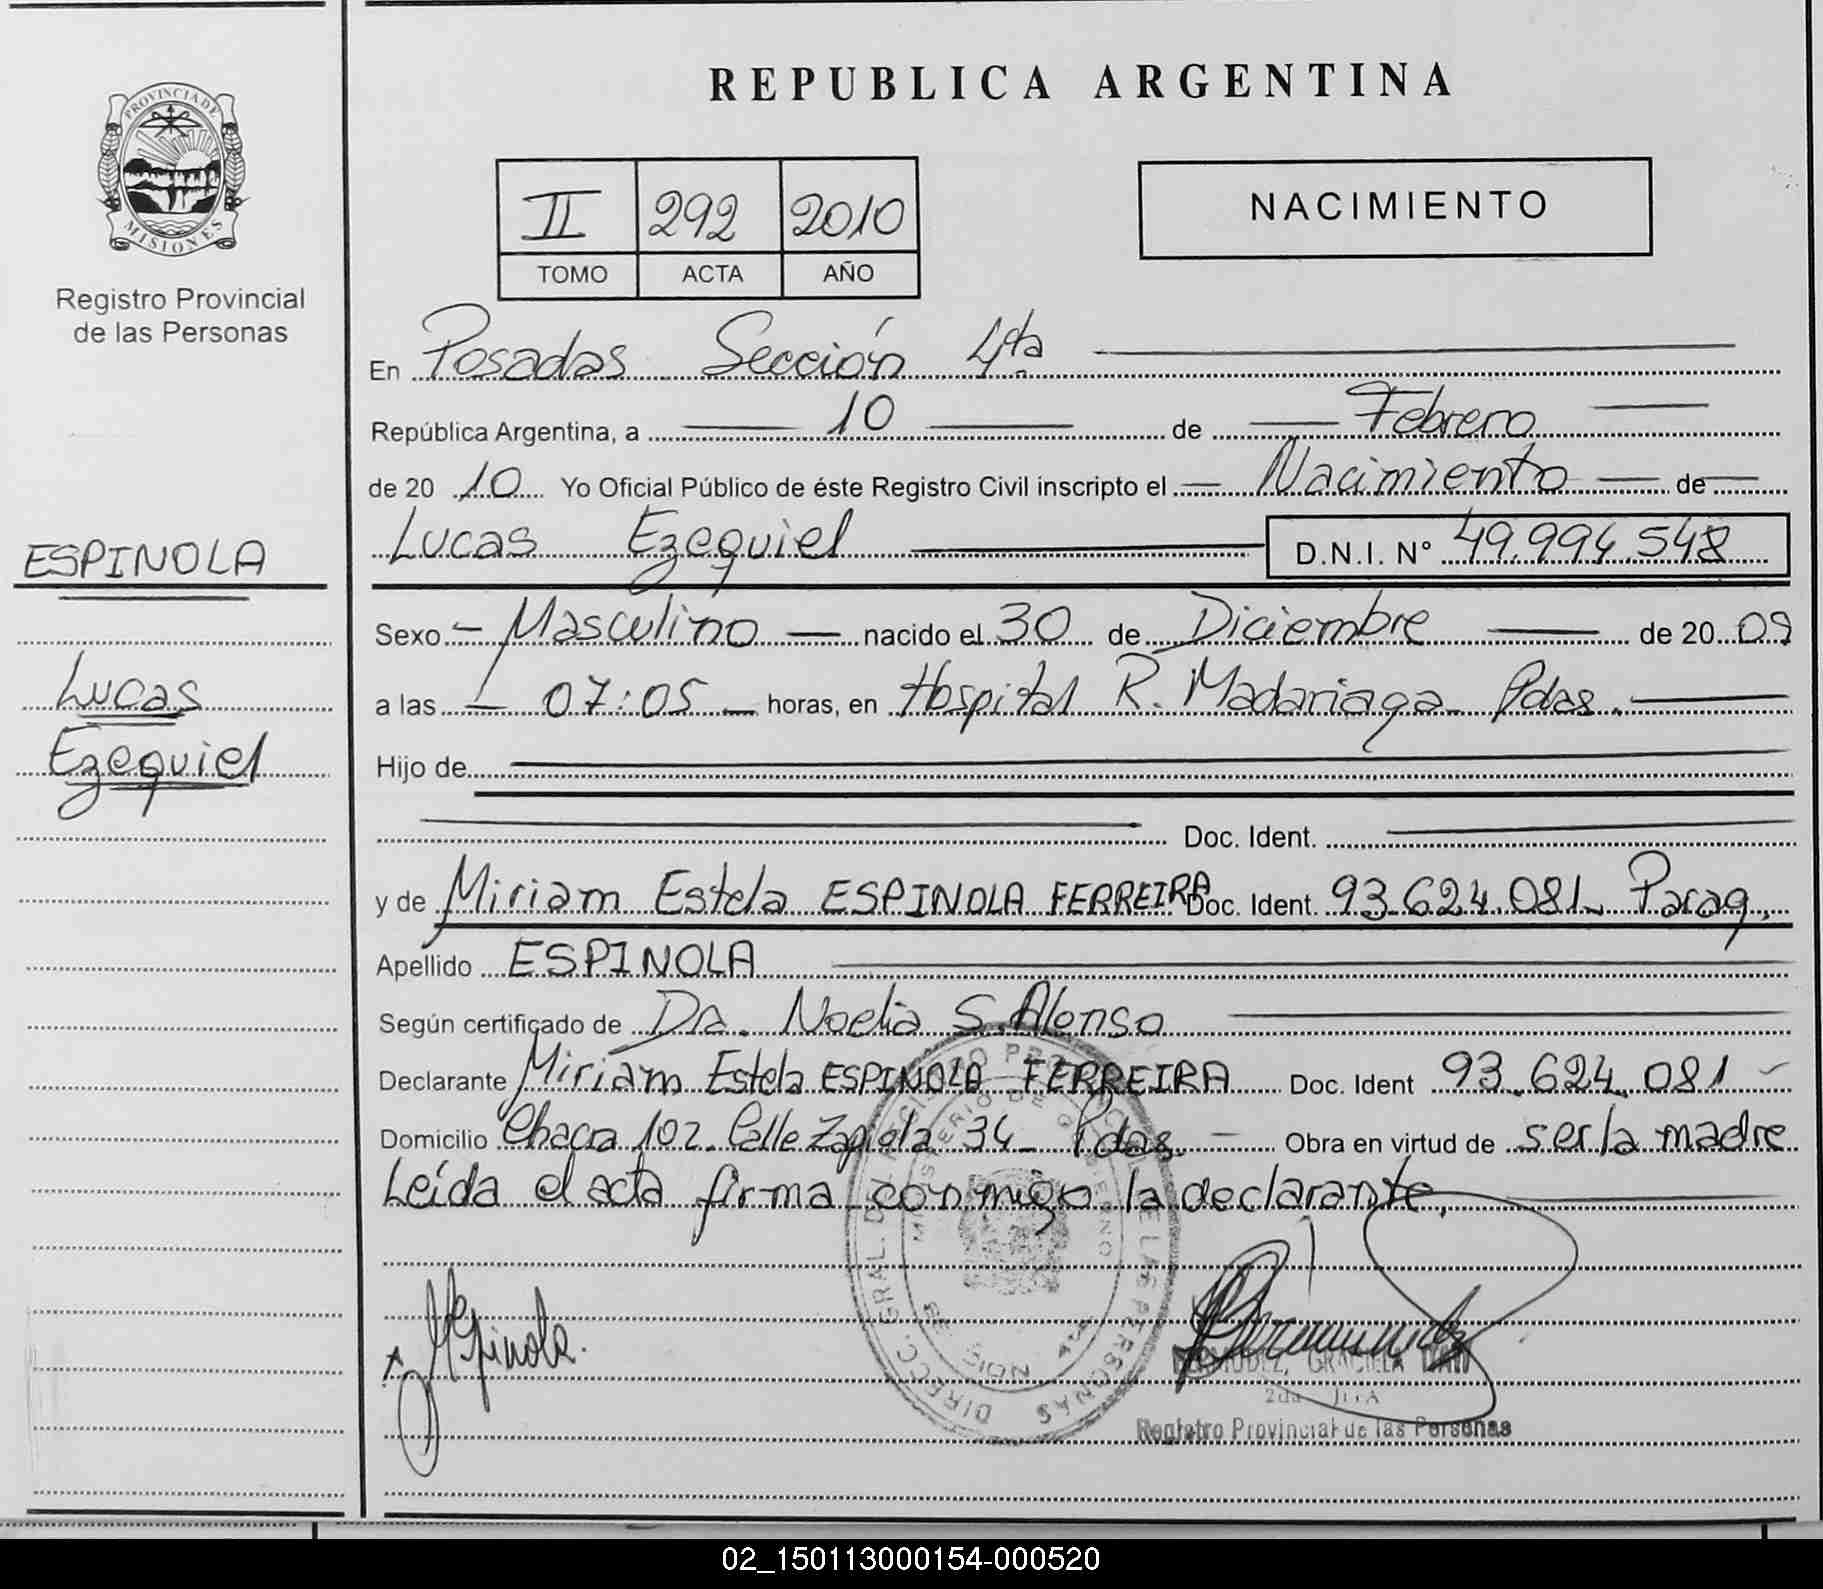 REPUBLICA ARGENTINA
PROVINCIA DE
MISIONES
Registro Provincial
de las Personas
II 292 2010
TOMO ACTA AÑO
NACIMIENTO
En Posadas Sección 4ta
República Argentina, a 10 de Febrero
de 20 10 Yo Oficial Público de éste Registro Civil inscripto el Nacimiento de
Lucas Ezequiel D.N.I. Nº 49.994.548
ESPINOLA
Lucas
Ezequiel
Sexo Masculino nacido el 30 de Diciembre de 20 09
a las 07:05 horas, en Hospital R. Madariaga Pdas.
Hijo de
Doc. Ident.
y de Miriam Estela ESPINOLA FERREIRA Doc. Ident. 93.624.081 Parag.
Apellido ESPINOLA
Según certificado de Dra. Noelia S. Alonso
Declarante Miriam Estela ESPINOLA FERREIRA Doc. Ident 93.624.081
Domicilio Chacra 102 Calle 34 Pdas. Obra en virtud de ser la madre
Leída el acta firma conmigo la declarante.
DIRECC. GRAL. DEL REGISTRO PROVINCIAL DE LAS PERSONAS
MINISTERIO DE GOBIERNO
MEspinola.
BERMUDEZ, GRACIELA
Registro Provincial de las Personas
02_150113000154-000520